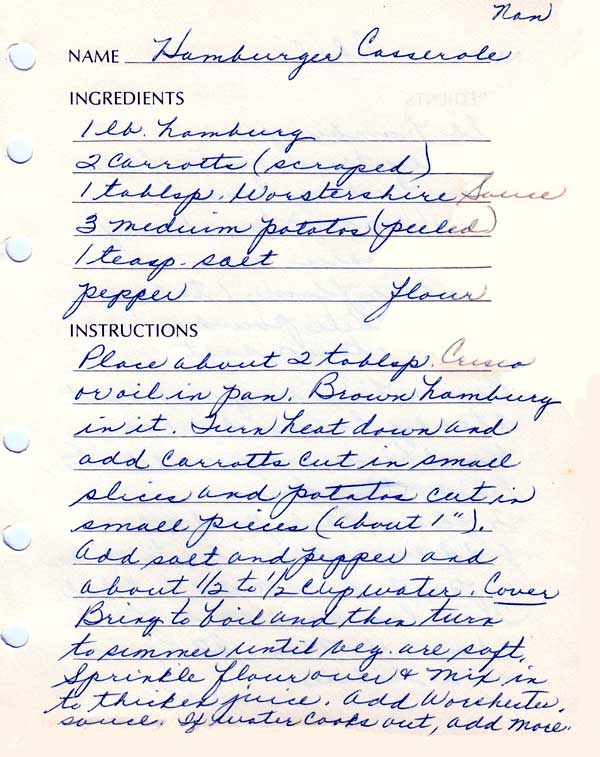 Nan
NAME Hamburger Casserole
INGREDIENTS
1 lb. hamburg
2 carrotts (scraped)
1 tablsp. Worstershire Sauce
3 medium potatos (peeled)
1 teasp. salt
pepper flour
INSTRUCTIONS
Place about 2 tablsp. Crisco
or oil in pan. Brown hamburg
in it. Turn heat down and
add carrotts cut in small
slices and potatos cut in
small pieces (about 1").
Add salt and pepper and
about 1/2 to 1/2 cup water. Cover
Bring to boil and then turn
to simmer until veg. are soft.
Sprinkle flour over & mix in
to thicken juice. Add Worshester.
sauce. If water cooks out, add more.